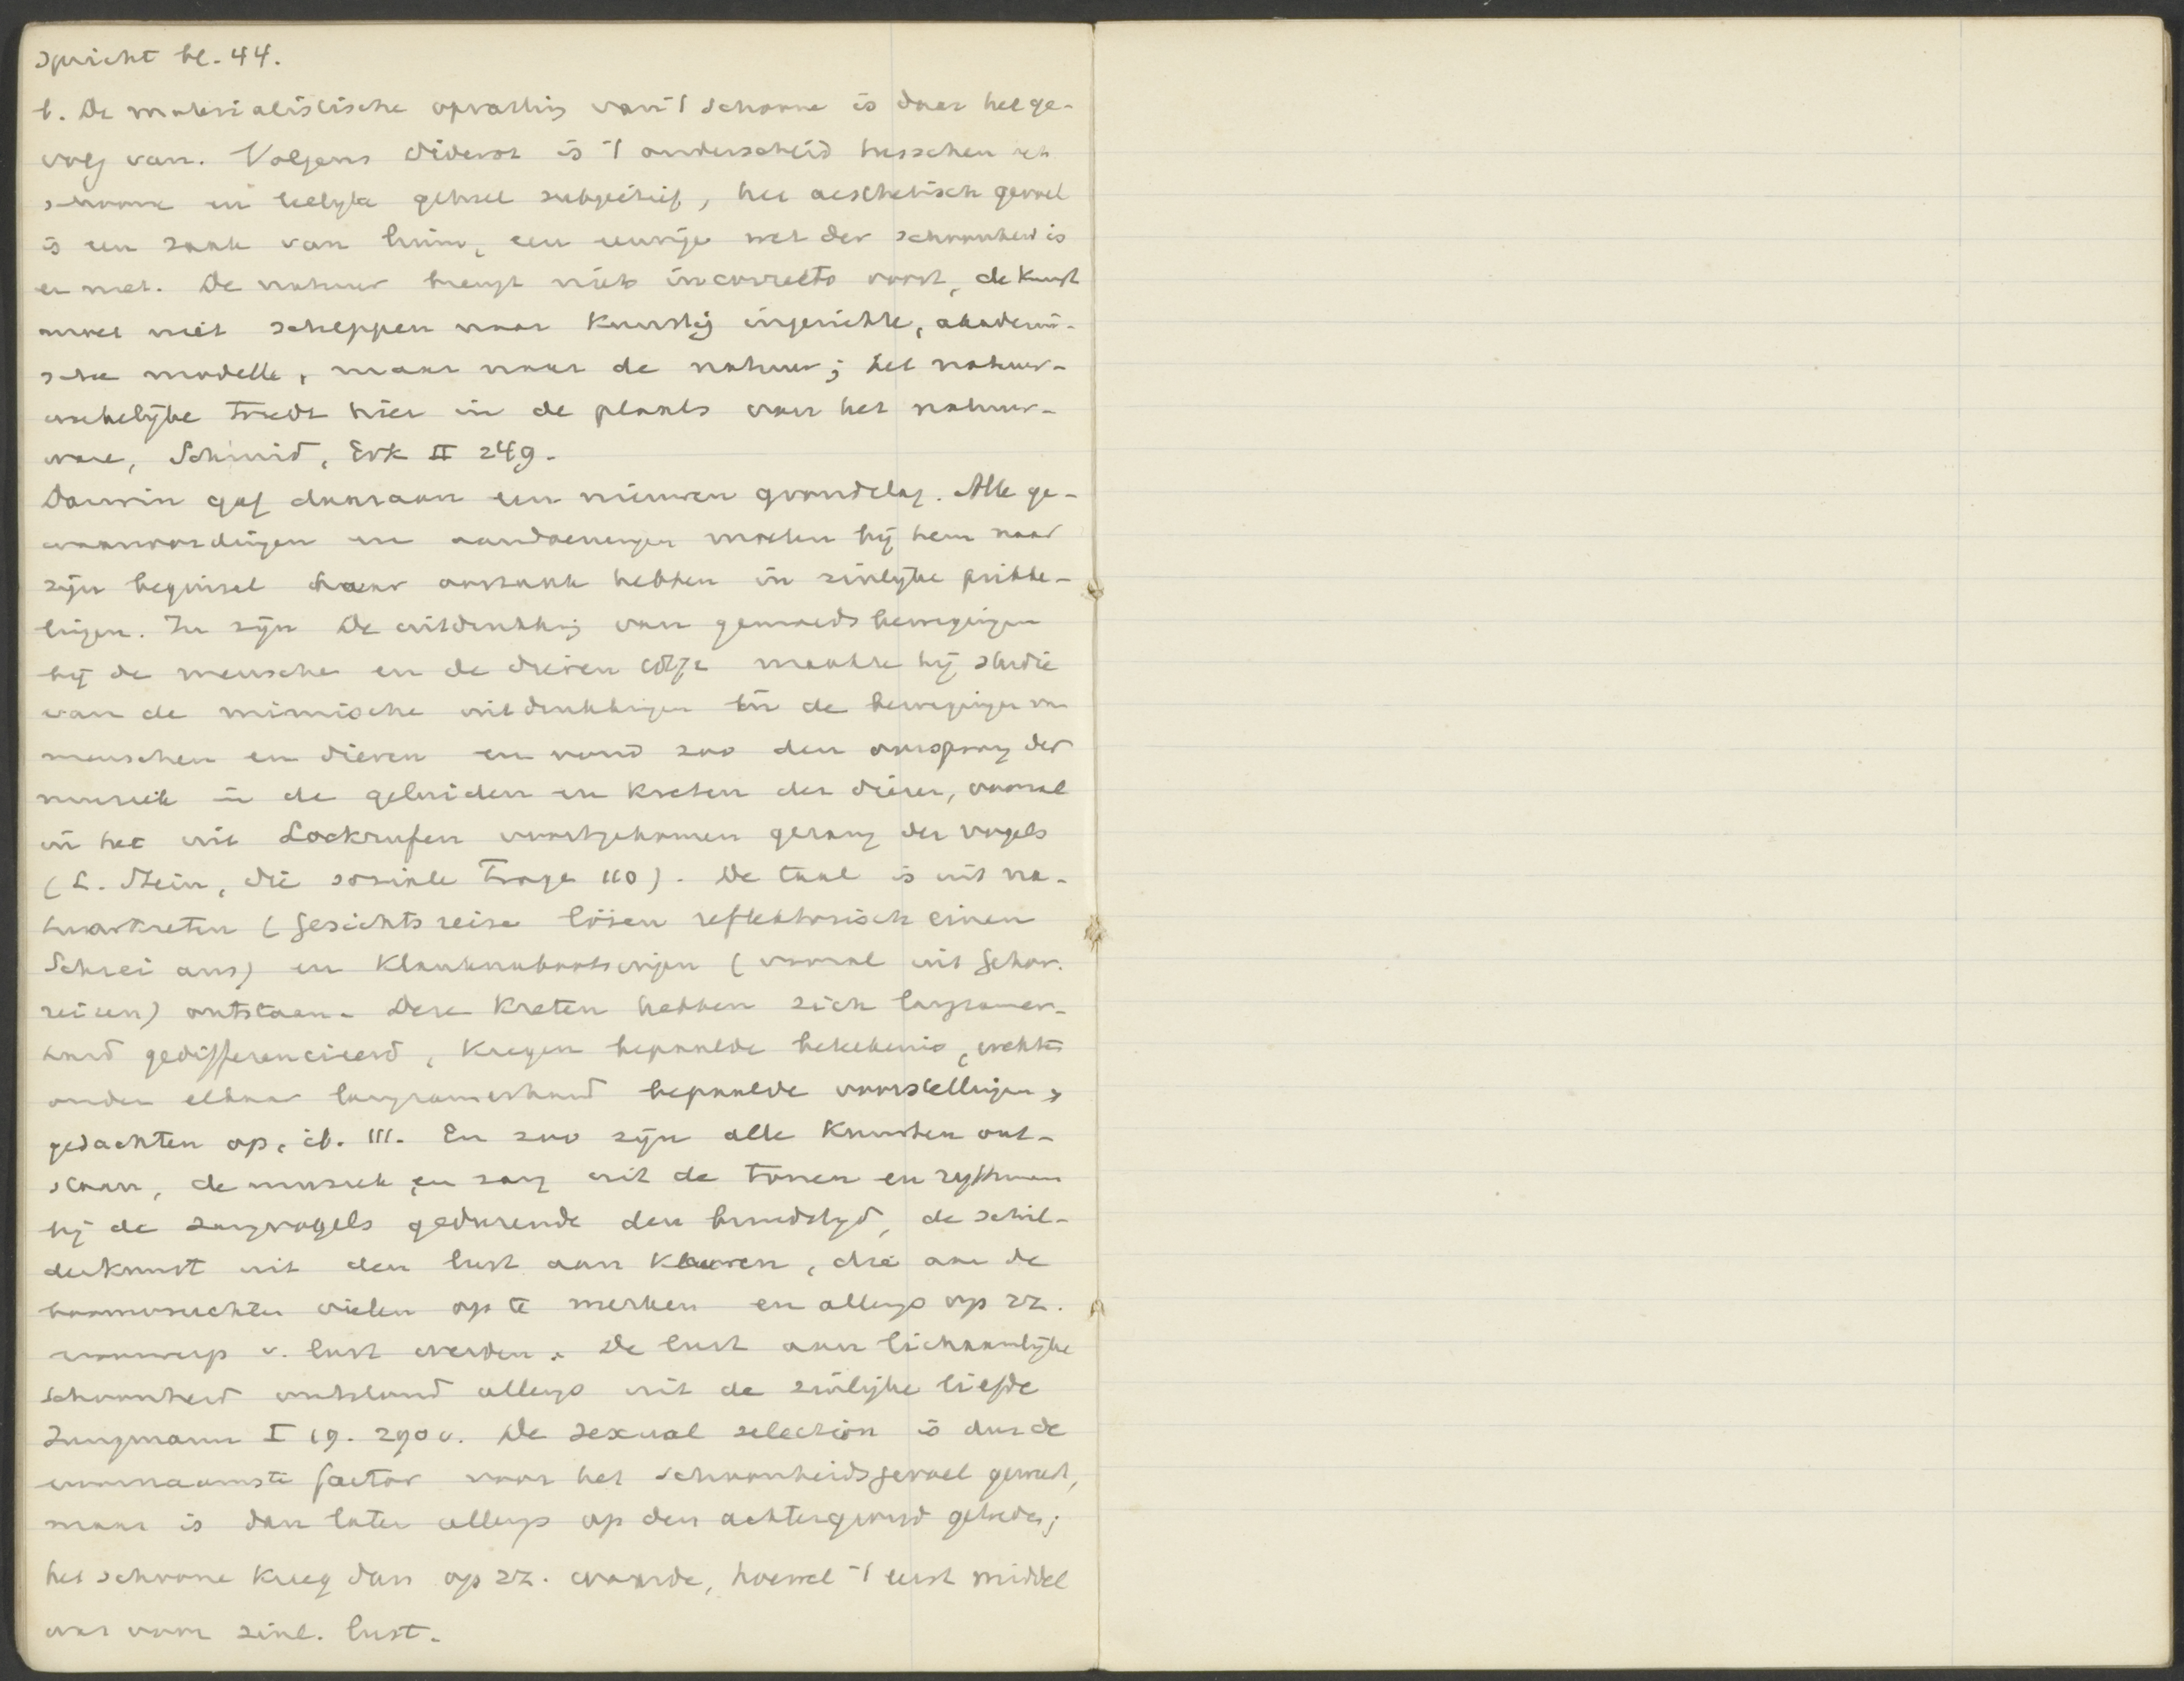 spricht bl. 44.
b. De materialistische opvatting van 't schoone is daar het ge-
volg van. Volgens Diderot is 't onderscheid tusschen het
schoone en leelijke geheel subjectief, het aesthetisch gevoel
is een zaak van luim, een eeuwige wet der schoonheid is
er niet. De natuur brengt niets incorrects voort, de kunst
moet niet scheppen naar kunstig ingerichte, akademi-
sche modelle, maar naar de natuur; het natuur-
werkelijke treedt hier in de plaats van het natuur-
ware, Schmid, Erk II 249.
Darwin gaf daaraan een nieuwen grondslag. Alle ge-
waarwordingen en aandoeningen moeten bij hem naar
zijn beginsel haar oorzaak hebben in zinlijke prikke-
lingen. In zijn De uitdrukking van gemoedsbewegingen
bij de mensche en de dieren maakte hij studie
van de mimische uitdrukkingen en de bewegingen van
menschen en dieren en vond zoo den oorsprong der
muziek in de geluiden en kreten der dieren, vooral
in het uit Lockrufen voortgekomen gezang der vogels
(L. Stein, die soziale Frage 110). De taal is uit na-
tuurkreten (Gesichtsreize lösen reflektorisch einen
Schrei aus) en klanknabootsingen (vooral uit Gehör-
reizen) ontstaan. Deze kreten hebben zich langzamer-
hand gedifferencieerd, kregen bepaalde beteekenis, wekten
onder elkaar langzamerhand bepaalde voorstellingen,
gedachten op, ib. 111. En zoo zijn alle kunsten ont-
staan, de muziek en zang uit de tonen en rythmen
bij de zangvogels gedurende den bruidstijd, de schil-
derkunst uit den lust aan kleuren, die aan de
boomvruchten vielen op te merken en allengs op zz.
voorwerp v. lust werden. De lust aan lichaamlijke
schoonheid ontstond allengs uit de zinlijke liefde
Jungmann I 19. 290 v. De sexual selection is dus de
voornaamste factor voor het schoonheidsgevoel geweest,
maar is dan later allengs op den achtergrond getreden;
het schoone kreeg dan op zz. waarde, hoewel 't eerst middel
was voor zinl. lust.